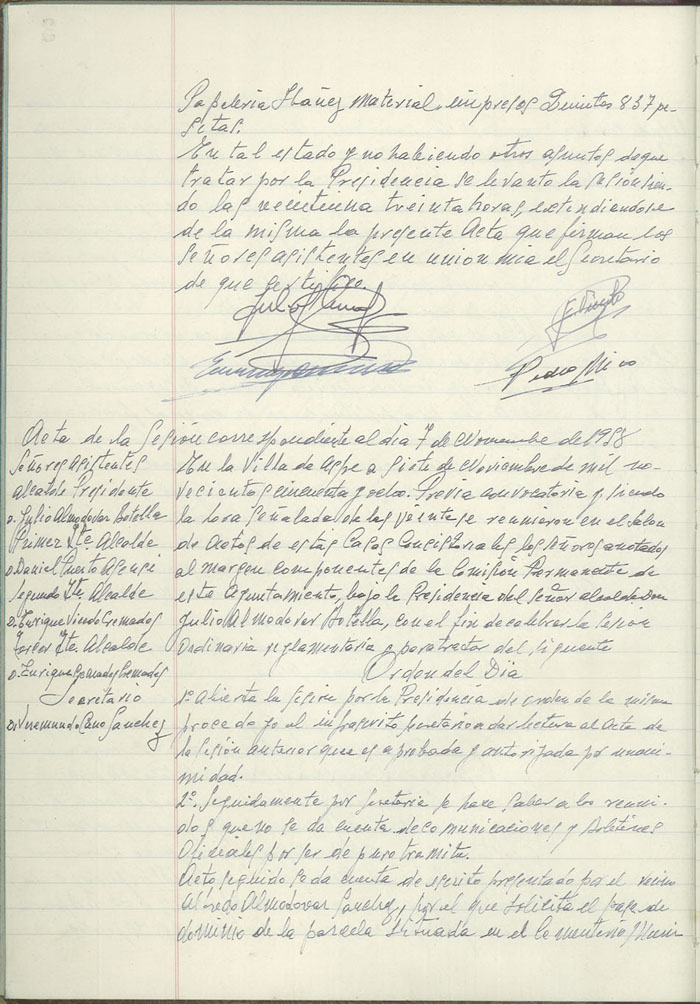 Papeleria Ibañez material impresos Quinientas 837 pe-
setas.
En tal estado y no habiendo otros asuntos de que
tratar por la Presidencia se levanto la sesión sien-
do las veintiuna treinta horas, extendiendose
de la misma la presente Acta que firman los
Señores asistentes en union mia el Secretario
de que certifico.
Pedro Mico
Acta de la Sesión correspondiente al dia 7 de Noviembre de 1958
Señores asistentes
Alcalde Presidente
D. Julio Almodovar Botella
Primer Tte. Alcalde
D. Daniel Puerto Asensi
Segundo Tte. Alcalde
D. Enrique Vicedo Cremades
Tercer Tte. Alcalde
D. Enrique Gonzales Cremades
Secretario
D. Veremundo Cano Sanchez
En la Villa de Aspe a siete de Noviembre de mil no-
vecientos cincuenta y ocho. Previa convocatoria y siendo
la hora señalada de las veinte se reunieron en el Salon
de Actos de estas Casas Consistoriales los señores anotados
al margen componentes de la Comisión Permanente de
este Ayuntamiento, bajo la Presidencia del Señor alcalde Don
Julio Almodovar Botella, con el fin de celebrar la Sesion
Ordinaria reglamentaria para tractar del siguente
Orden del Dia
1º Abierta la sesión por la Presidencia de orden de la misma
procedo yo el infrascrito secretario a dar lectura al Acta de
la Sesión anterior que es aprobada y autorizada por unani-
midad.
2º. Seguidamente por Secretaria se hace saber a los reuni-
dos que no se da cuenta de comunicaciones y Boletines
Oficiales por ser de puro tramite.
Acto seguido se da cuenta de escrito presentado por el vecino
Alfredo Almodovar Sanchez, por el que solicita el pase de
dominio de la parcela situada en el Cementerio Muni